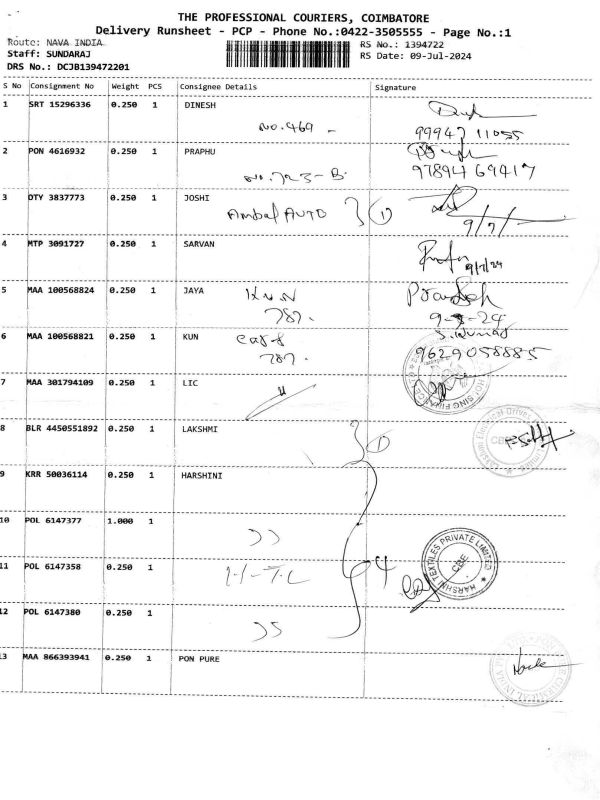 THE PROFESSIONAL COURIERS, COIMBATORE
Delivery Runsheet - PCP - Phone No.:0422-3505555 - Page No.:1
Route: NAVA INDIA
RS No.: 1394722
Staff: SUNDARAJ
RS Date: 09-Jul-2024
DRS No.: DCJB139472201
S No Consignment No Weight PCS Consignee Details Signature
1 SRT 15296336 0.250 1 DINESH
No.469 - 99947 11055
2 PON 4616932 0.250 1 PRAPHU
No.723-B. 97894 69417
3 DTY 3837773 0.250 1 JOSHI
Ambal AUTO 1 9/7/
4 MTP 3091727 0.250 1 SARVAN
9/7/24
5 MAA 100568824 0.250 1 JAYA
787. 9-7-24
6 MAA 100568821 0.250 1 KUN
787. 9629058885
7 MAA 301794109 0.250 1 LIC
8 BLR 4450551892 0.250 1 LAKSHMI
9 KRR 50036114 0.250 1 HARSHINI
10 POL 6147377 1.000 1
11 POL 6147358 0.250 1
H-T.C 4
HARSHNI TEXTILES PRIVATE LIMITED
CBE
12 POL 6147380 0.250 1
13 MAA 866393941 0.250 1 PON PURE